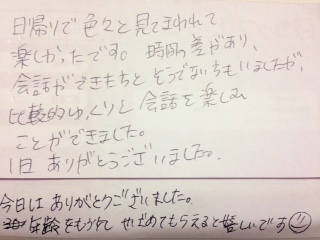 日帰りで色々と見てまわれて
楽しかったです。時間差があり、
会話ができたちととそうでないちもいましたが、
比較的ゆっくりと会話を楽しむ
ことができました。
1日ありがとうございました。
今日はありがとうございました。
年齢をもうすこしせばめてもらえると嬉しいです